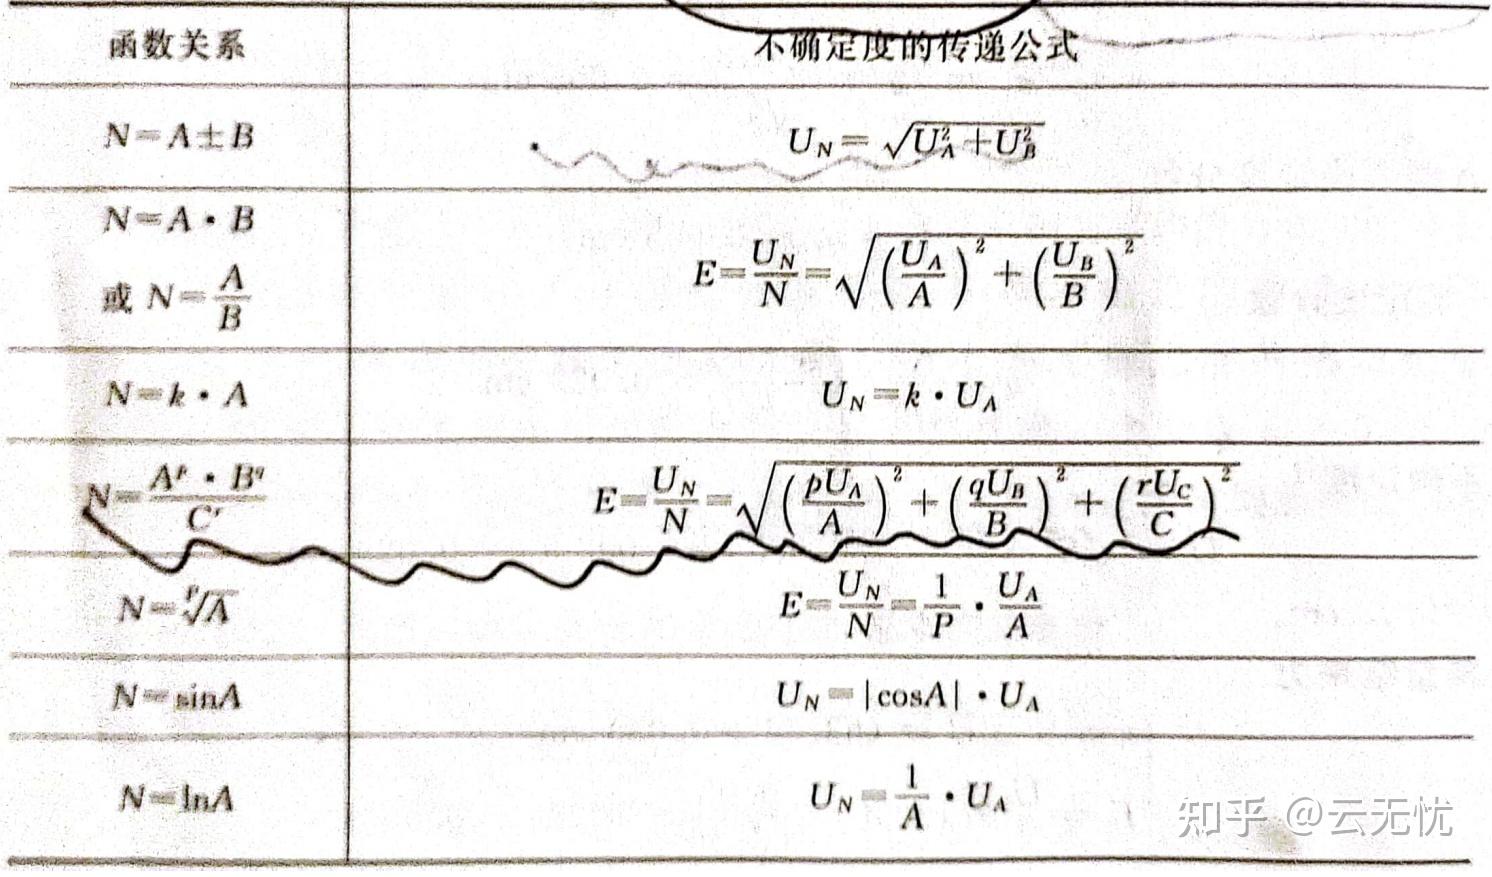 函数关系 不确定度的传递公式
N=A±B U_N=√(U_A²+U_B²)
N=A·B
或 N=A/B E=U_N/N=√((U_A/A)²+(U_B/B)²)
N=k·A U_N=k·U_A
N=A^p·B^q/C^r E=U_N/N=√((pU_A/A)²+(qU_B/B)²+(rU_C/C)²)
N=ᵖ√A E=U_N/N=1/P·U_A/A
N=sinA U_N=|cosA|·U_A
N=lnA U_N=1/A·U_A
知乎 @云无忧